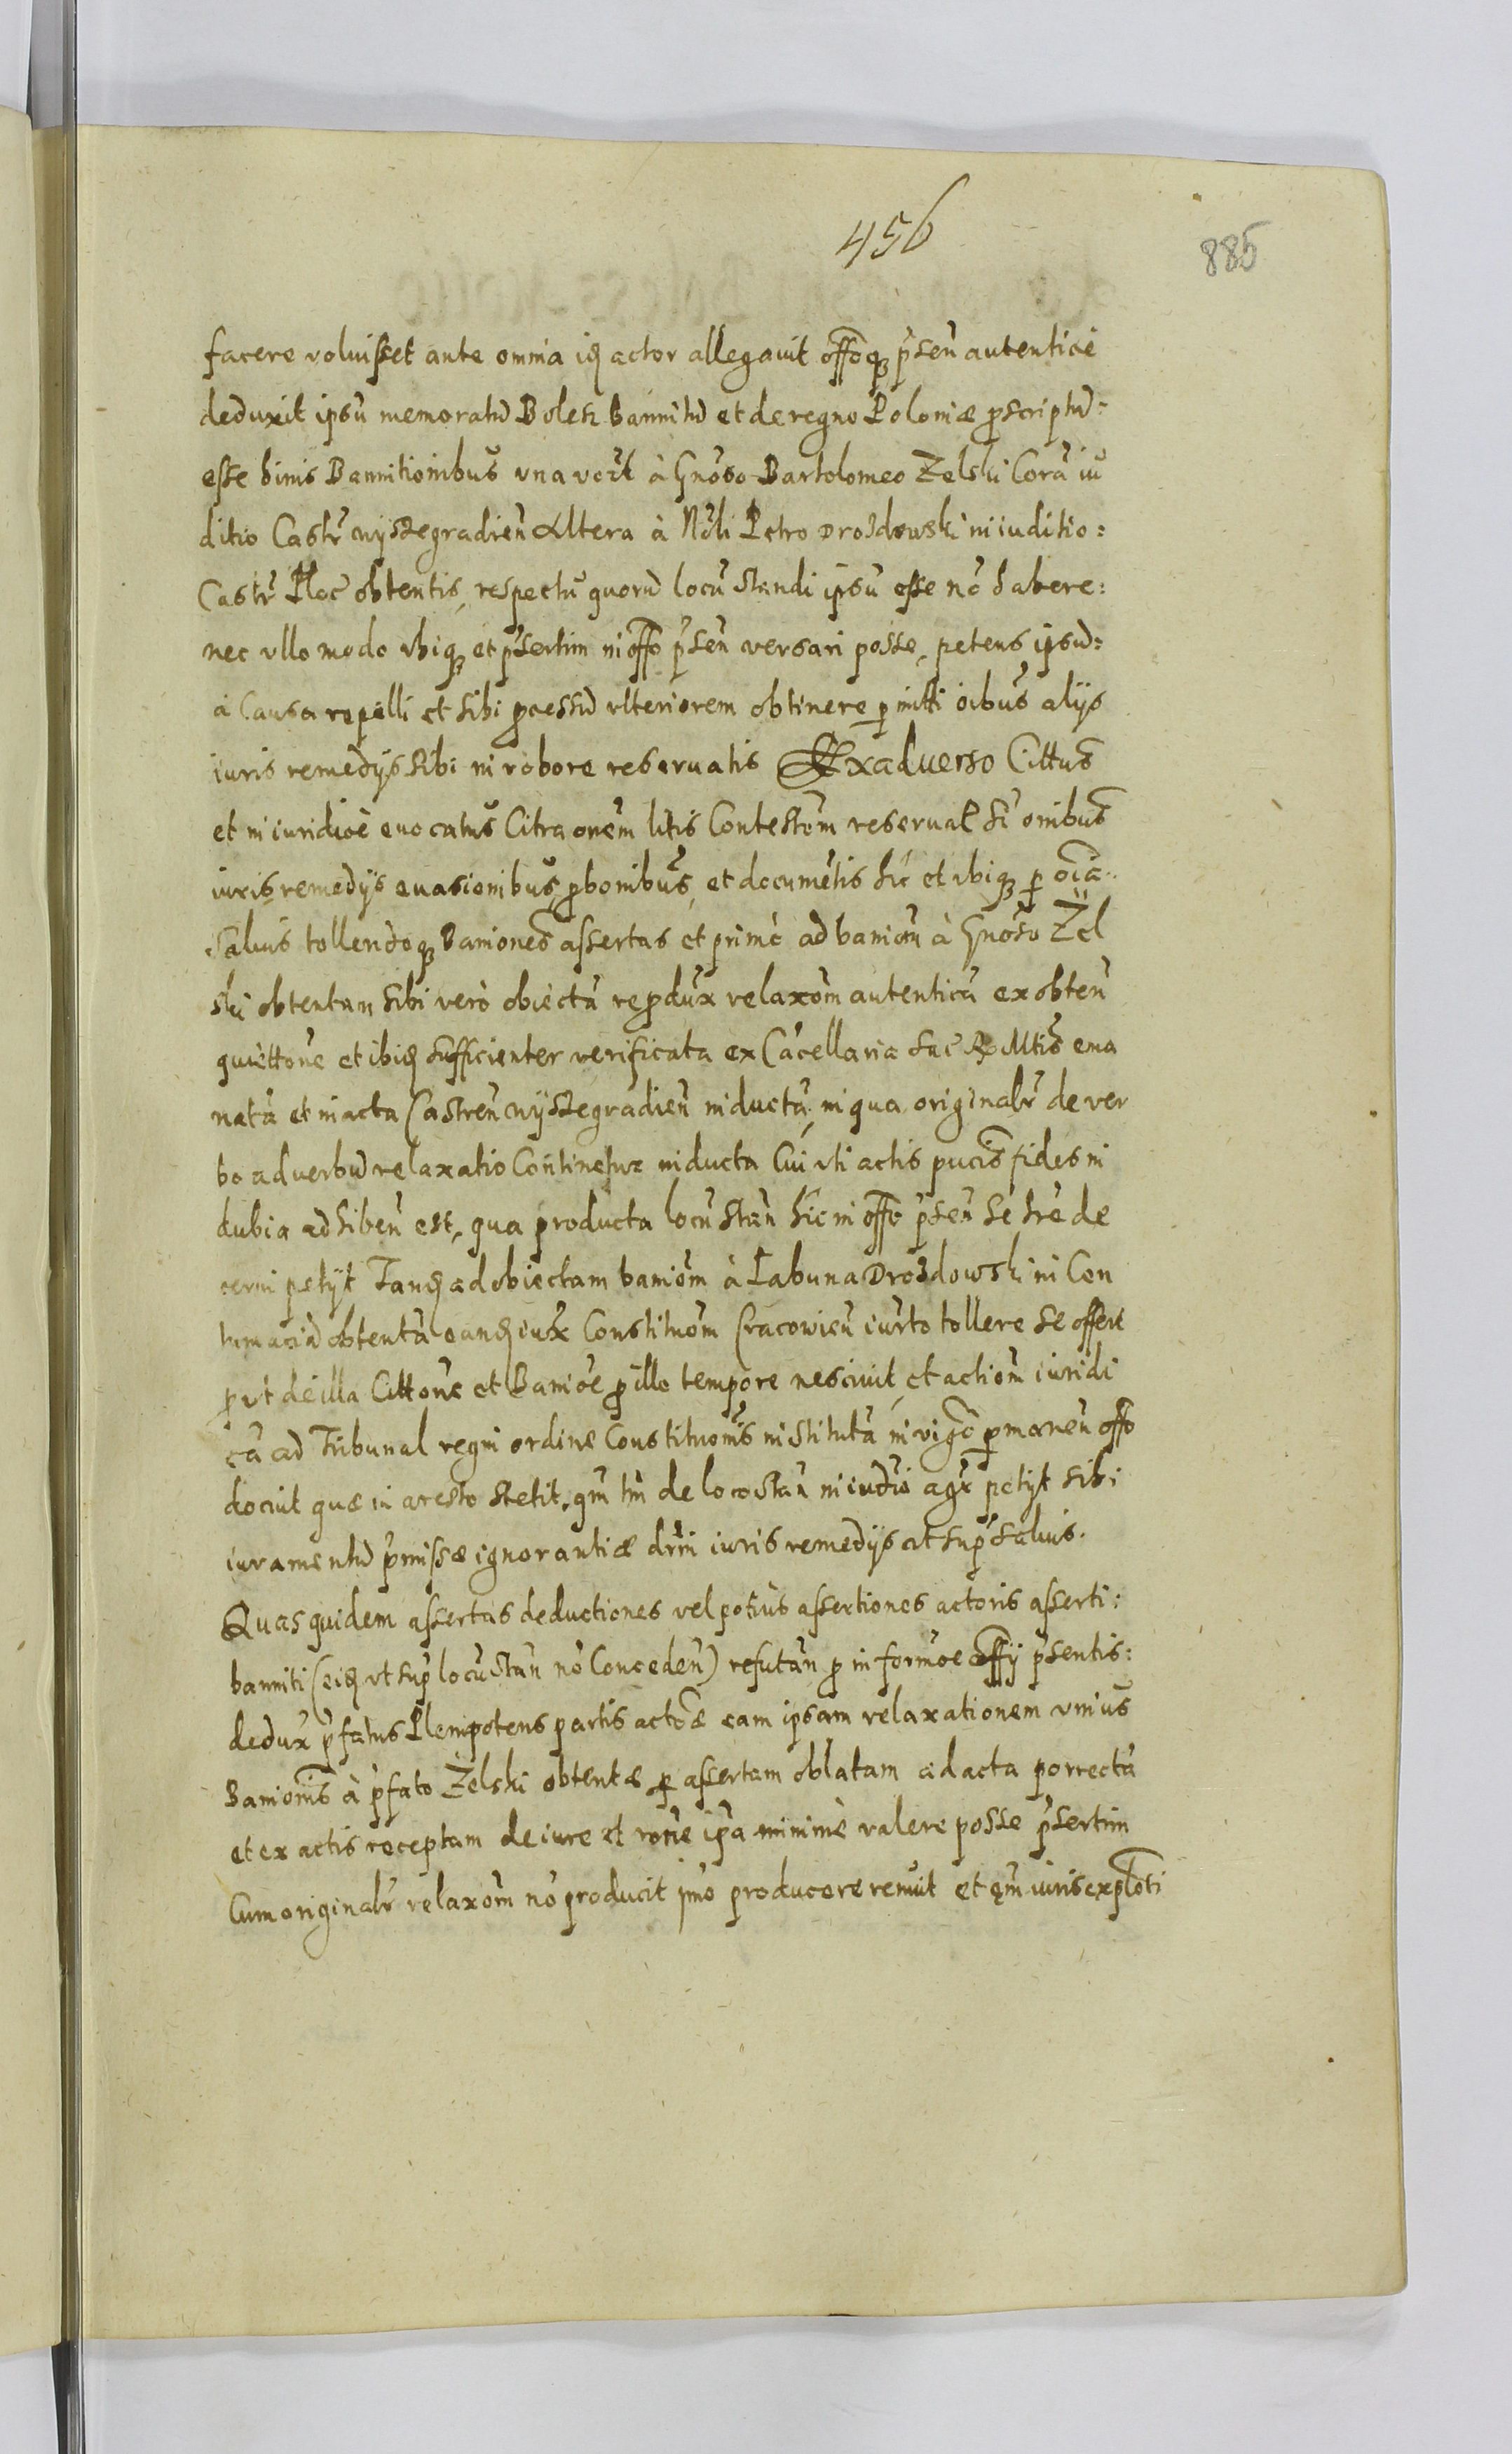 456
885
facere voluisset ante omnia idq actor allegavit offoq p̃sen̄ autentice
deduxit ipsũ memoratũ Bolesz bannitũ et de regno Poloniæ ꝓscriptũ:
esse binis Bannitionibus una vert à Gnoso Bartolomeo Zelski Corã iu
ditio Castr̃ wyszegradien̄ Altera à Nobli Petro Drozdowski in iuditio:
Castr̃ Ploc̃ obtentis, respectu quorũ locũ standi ipsũ esse nõ habere:
nec ullo modo ubiq et p̃sertim in offo p̃sen̄ versari posse, petens ipsũ:
à Causa repelli et sibi ꝓcessũ ulteriorem obtinere ꝑmitti oibus alijs
iuris remedijs sibi in robore reservatis Ex adverso Cittus
et in iuridice evocatus Citra onem litis Contestom̃ reservat si omnibus
iuris remedijs evasionibus, ꝓbonibus, et documẽtis hic et ubiq ꝑ oia
salvis tollendoq Baniones assertas et primo ad baniom̃ à Gnoso Zel
ski obtentam sibi verò obiectã reꝓdux relaxom̃ autenticã ex obten̄
quiettone et ibiq sufficienter verificata ex Cãcellaria Sac R Mtis ema
natã et in acta Castren̄ wyszegradien̄ inductã, in qua originalr̃ de ver
bo ad verbũ relaxatio Continetur inducta Cui uti actis pucis fides in
dubia adhiben̄ est, qua producta locũ stan̄ hic in offo p̃sen̄ se hr̃e de
cerni petijt Tandq ad obiectam baniom̃ à Labuna Drozdowski in Con
tumaciã obtentã eandq iux̃ Constituom̃ Cracowien̄ iurto tollere se offert
ꝓut de illa Cittone et Banioe ꝓ illo tempore nescivit, et actiom̃ iuridi
cã ad Tribunal regni ordine Constituomis institutã in vigo ꝑmanen̄ offo
docuit quæ in aresto stetit, qm̃ tm̃ de loco stan̄ in iudio agr̃ petijt sibi
iuramentũ p̃missæ ignorantiæ drni iuris remedijs ut sup̃ salvis.
Quas quidem assertas deductiones vel potius assertiones actoris asserti:
banniti (eiq ut sup̃ locũ stan̄ nõ Conceden̄) refutan̄ ꝓ informoe offij p̃sentis:
dedux̃ p̃fatus Plenipotens partis actoæ eam ipsam relaxationem unius
Banionis à p̃fato Żelski obtentæ ꝑ assertam oblatam ad acta porrectã
et ex actis receptam de iure et rone ipsa minimè valere posse p̃sertim
Cum originalr̃ relaxom̃ nõ producit imo producere renuit et qm̃ iuris explōti